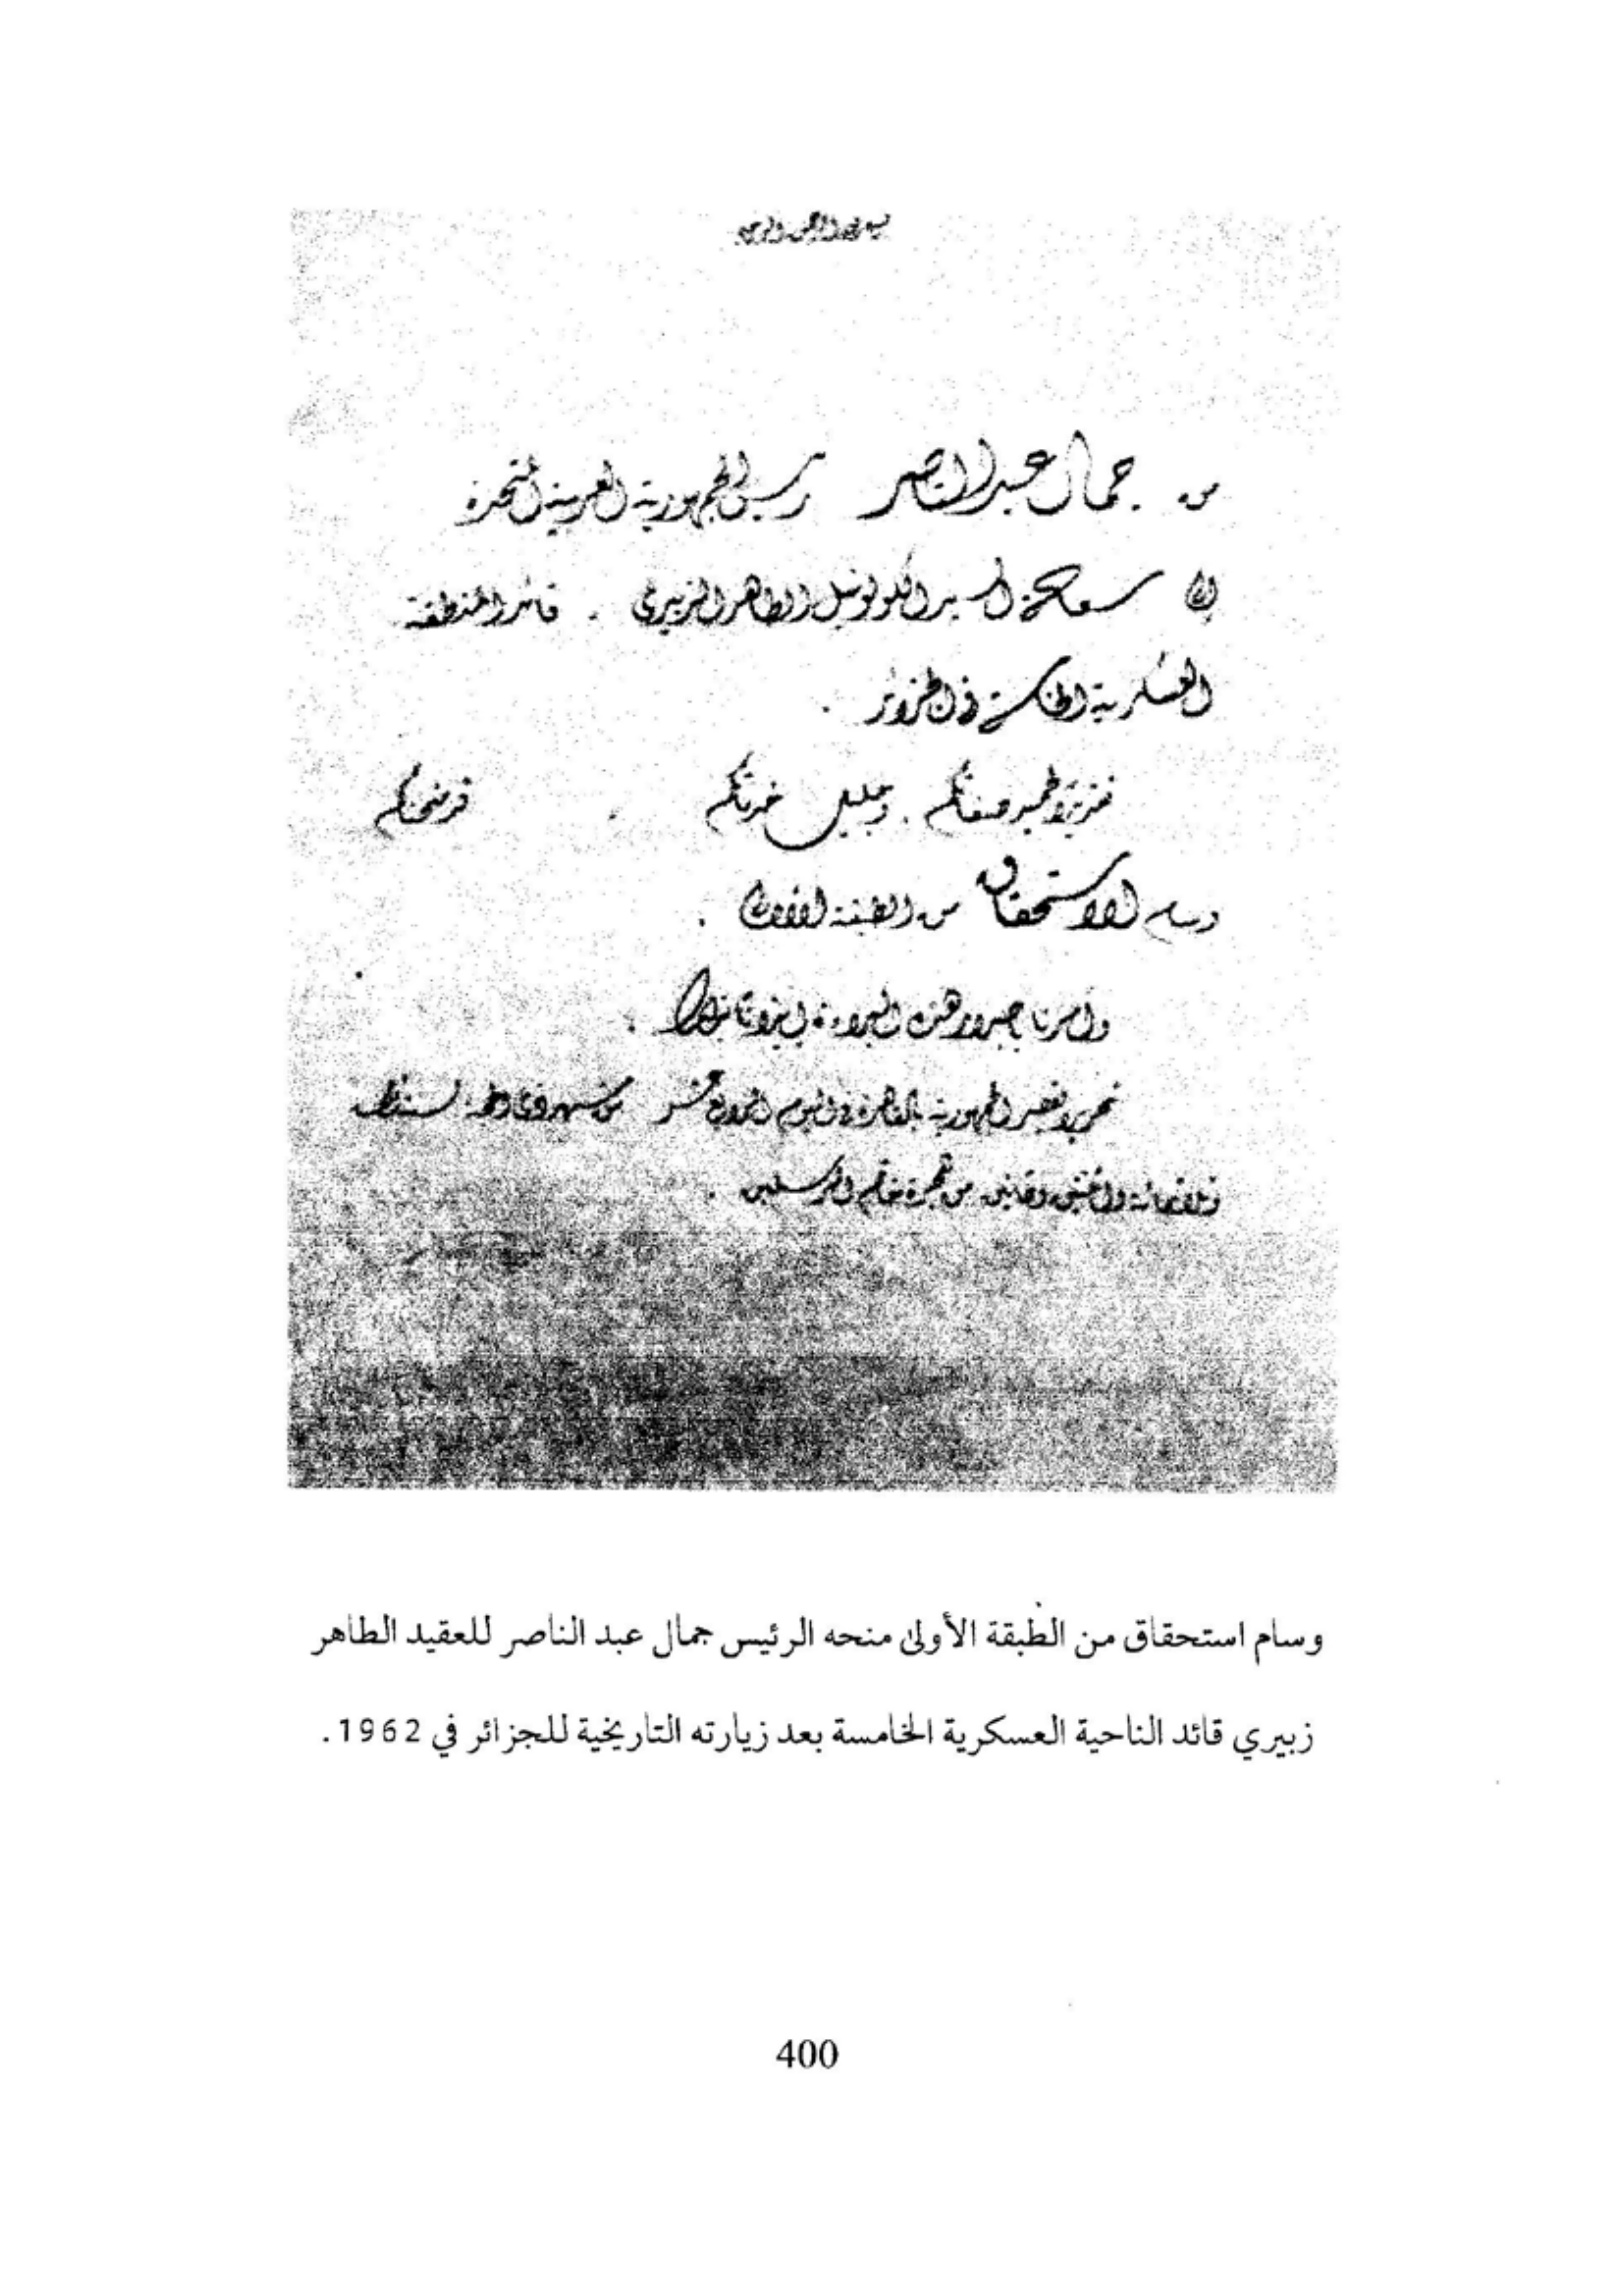 بسم الله الرحمن الرحيم
من جمال عبد الناصر رئيس الجمهورية العربية المتحدة
إلى سعادة السيد الكولونيل الطاهر الزبيري . قائد المنطقة
العسكرية الخامسة في الجزائر .
تقديرا لحميد صفاتكم . وجليل خدماتكم قد منحناكم
وسام الاستحقاق من الطبقة الأولى .
وأمرنا بإصدار هذه البراءة إيذانا بذلك .
تحريرا بقصر الجمهورية بالقاهرة في اليوم الرابع عشر من شهر لسنة
وثلاثمائة واثنتين وثمانين من هجرة خاتم المرسلين .
وسام استحقاق من الطبقة الأولى منحه الرئيس جمال عبد الناصر للعقيد الطاهر
زبيري قائد الناحية العسكرية الخامسة بعد زيارته التاريخية للجزائر في 1962 .
400